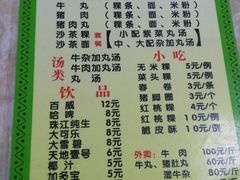 牛丸（粿条、面、米粉）
猪肉（粿条、面、米粉）
猪肉丸（粿条、面、米粉）
沙茶粿 套餐 小配紫菜丸汤
沙茶面 中、大配杂加丸汤
汤类
牛杂加丸汤
牛肉加丸汤
饮品
百威 12元
哈啤 8元
珠江纯生 8元
可乐 5元
大可乐 8元
大雪碧 8元
天地壹号 6元
椰汁 5元
加多宝 5元
小吃
无米粿 5元/例
菜头粿 5元/例
春卷 5元/条
猪脚圈 3元/个
红桃粿 4元/个
大红桃粿
脆皮酥 10元/例
外卖：牛肉 100元/斤
牛丸、猪肚丸 60元/斤
湿牛杂 80元/斤